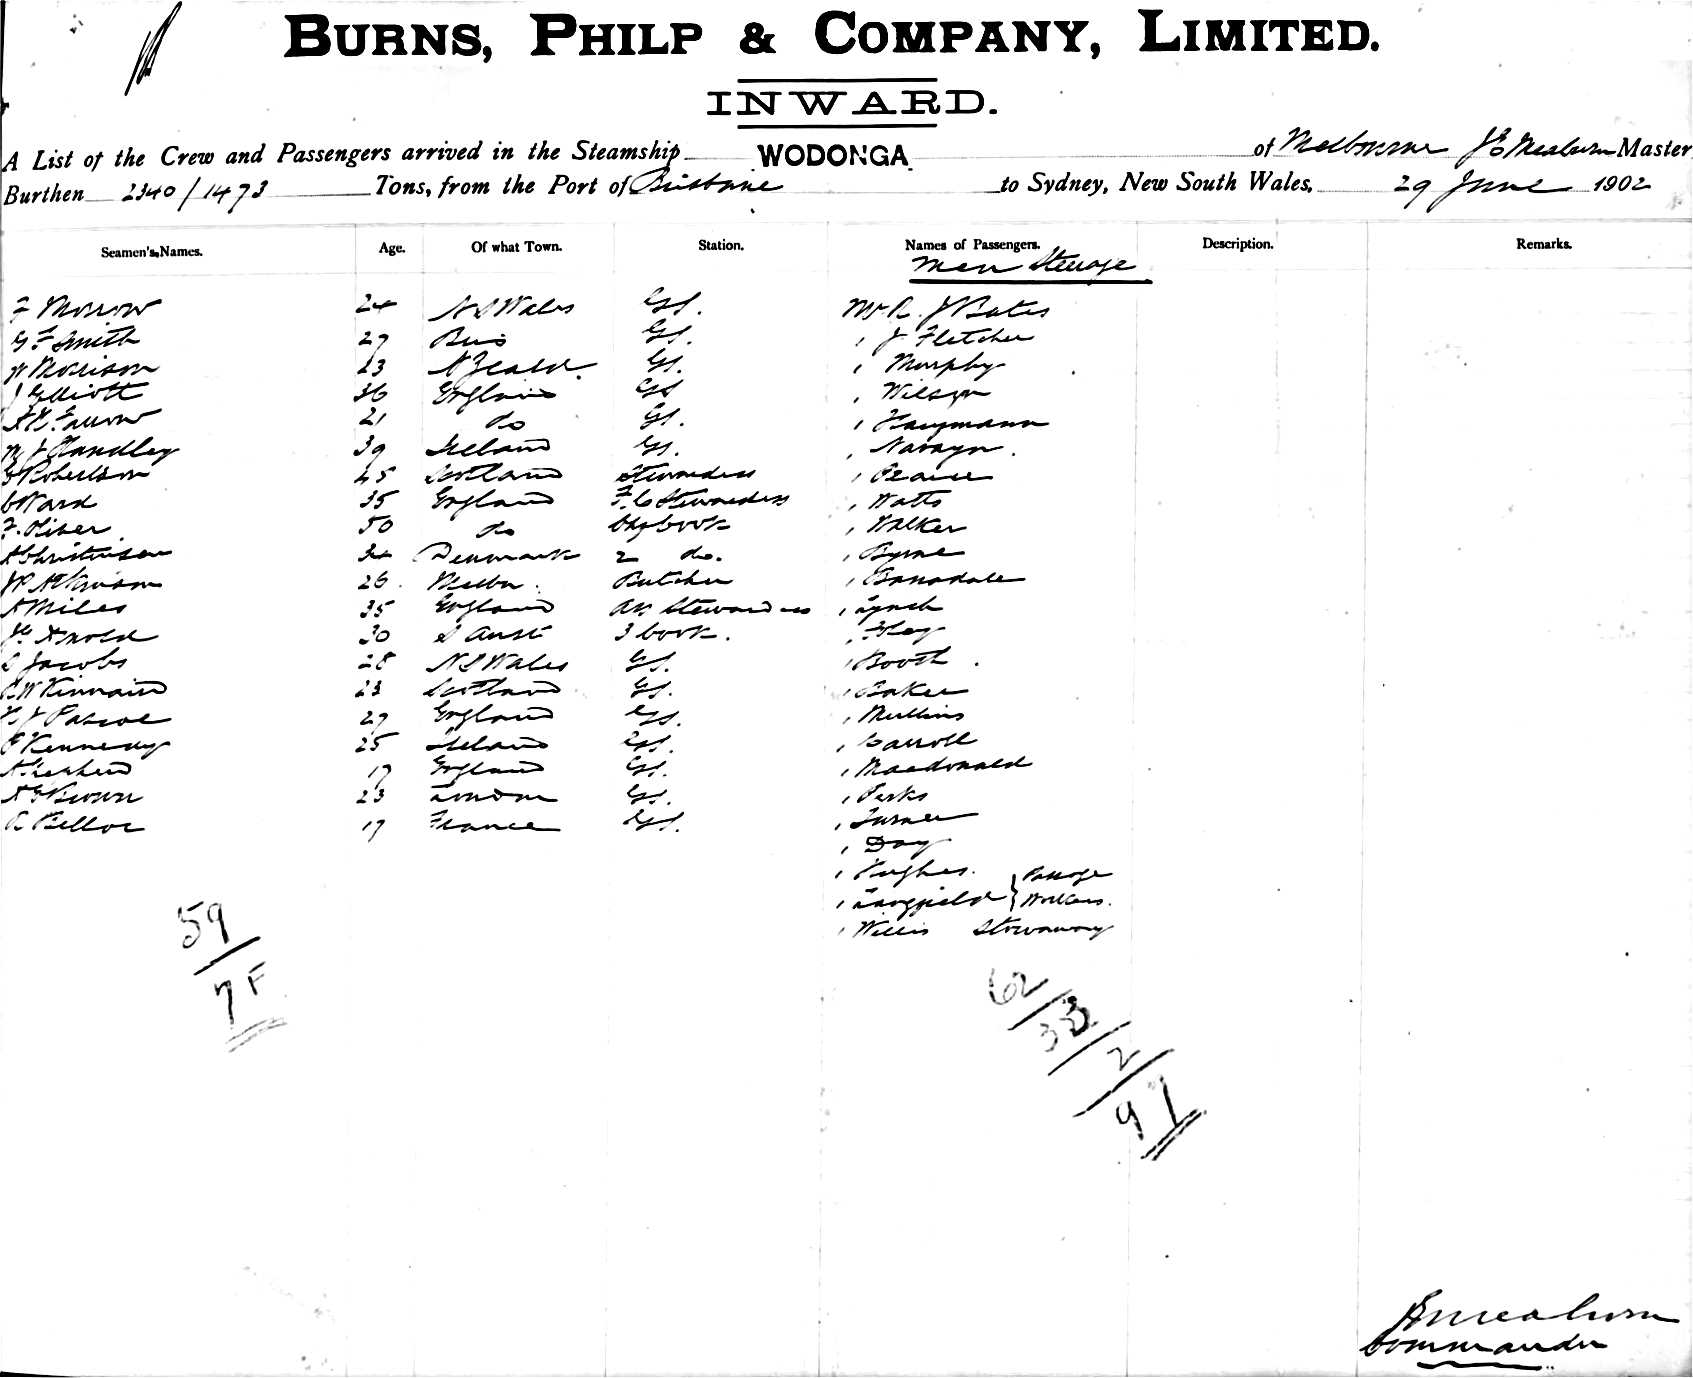 BURNS, PHILP & COMPANY, LIMITED.
INWARD.
A List of the Crew and Passengers arrived in the Steamship WODONGA of Melbourne Meaburn Master
Burthen 2340/1473 Tons, from the Port of Brisbane to Sydney, New South Wales, 29 June 1902
Seamen's Names. Age. Of what Town. Station. Names of Passengers. Description. Remarks.
Men Steerage
F Morrow 24 N S Wales GS. Mr R. J Bates
G F Smith 27 Bris GS. " J Fletcher
W Morrison 23 N Zeald. GS. " Murphy
J Elliott 36 England GS " Wilson
21 do GS. "
W J Handley 39 Ireland GS. "
G Robertson 45 Scotland Stewardess " Pearce
C Ward 35 England F.C Stewardess " Watts
F. Oliver 50 do Ch Cook " Walker
A Christensen 34 Denmark 2 do. " Byrne
W Atkinson 26. Melbn. Butcher "
A Miles 35 England Stewardess " Lynch
Arnold 30 S Aust 3 Cook. "
Jacobs 28 N S Wales GS. " Booth.
Kinnaird 23 Scotland GS. " Baker
J Pascoe 27 England GS. " Mullins
Kennedy 25 Ireland GS. " Carroll
17 England GS. " Macdonald
A G Brown 23 London GS. " Perks
Belloc 17 France GS. " Turner
" Day
" Hughes. } Passage
" } Workers.
" Willis Stowaway
59
7F
62/33/2/97
Meaburn
Commander